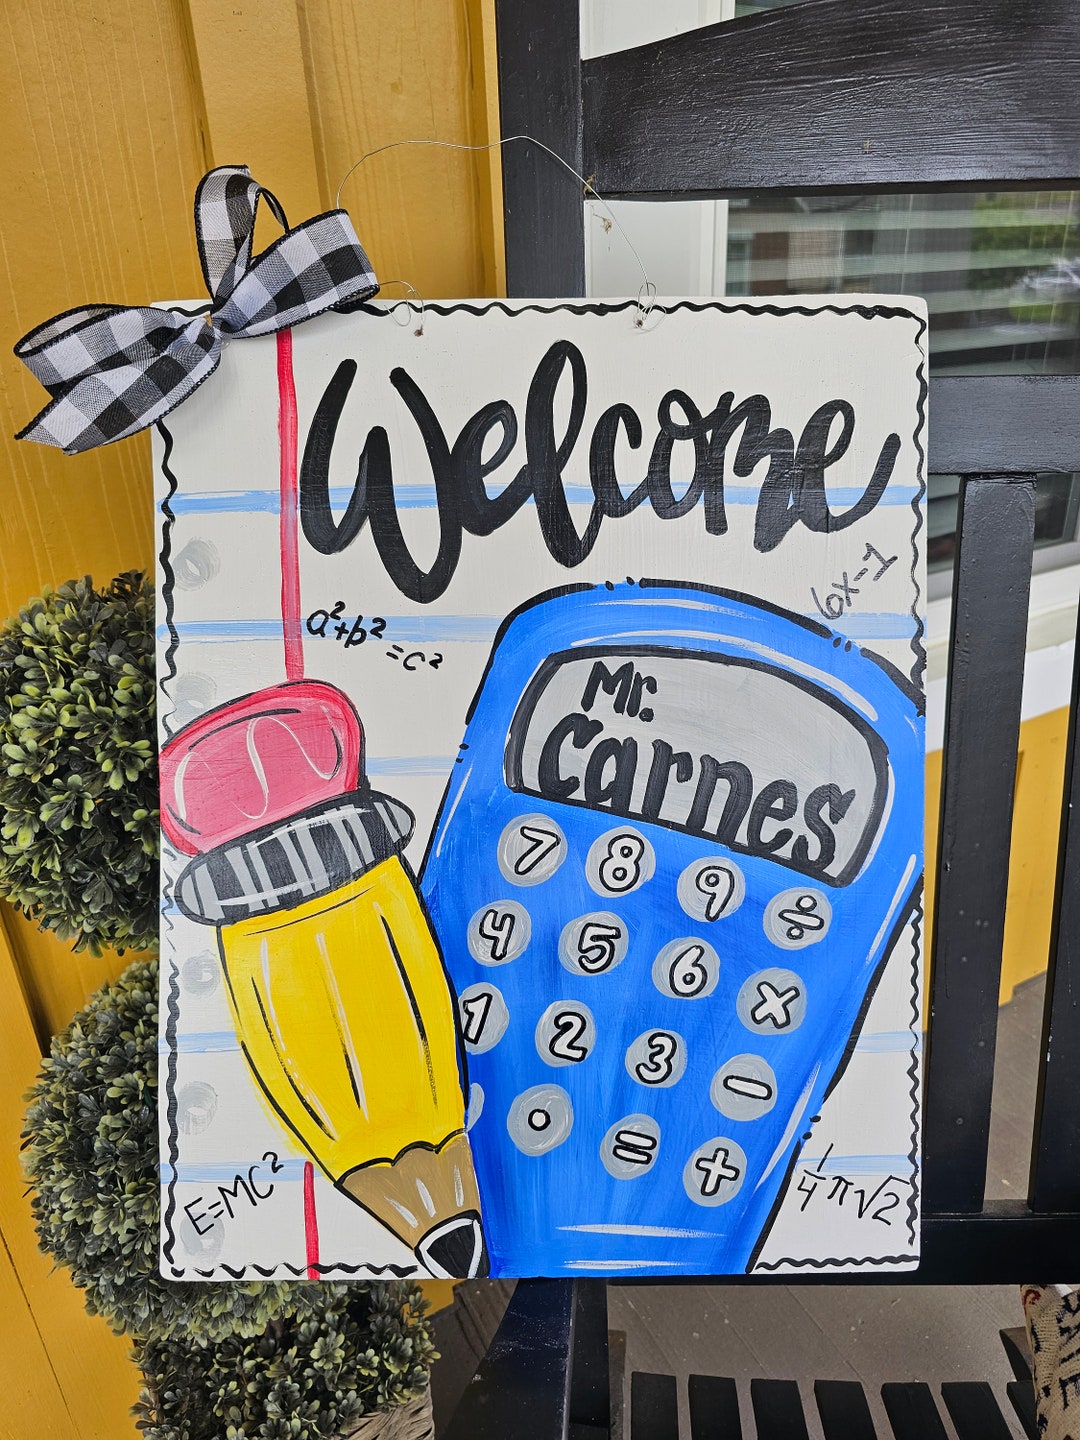 Welcome
a²+b²
=c²
6x-1
Mr.
Carnes
7 8 9 ÷
4 5 6 x
1 2 3 -
. = +
E=MC²
1/4 π√2